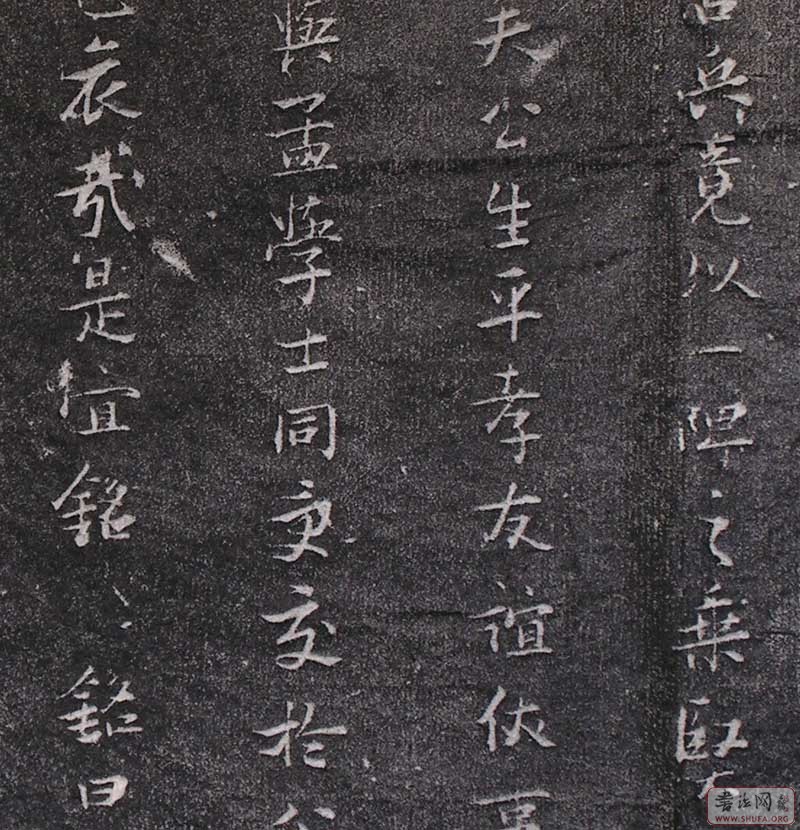 兵竟以一陴之乘臥
夫公生平孝友誼
與孟學士同庚交於公
哀哉是宜銘〻銘曰
書法网
WWW.SHUFA.ORG